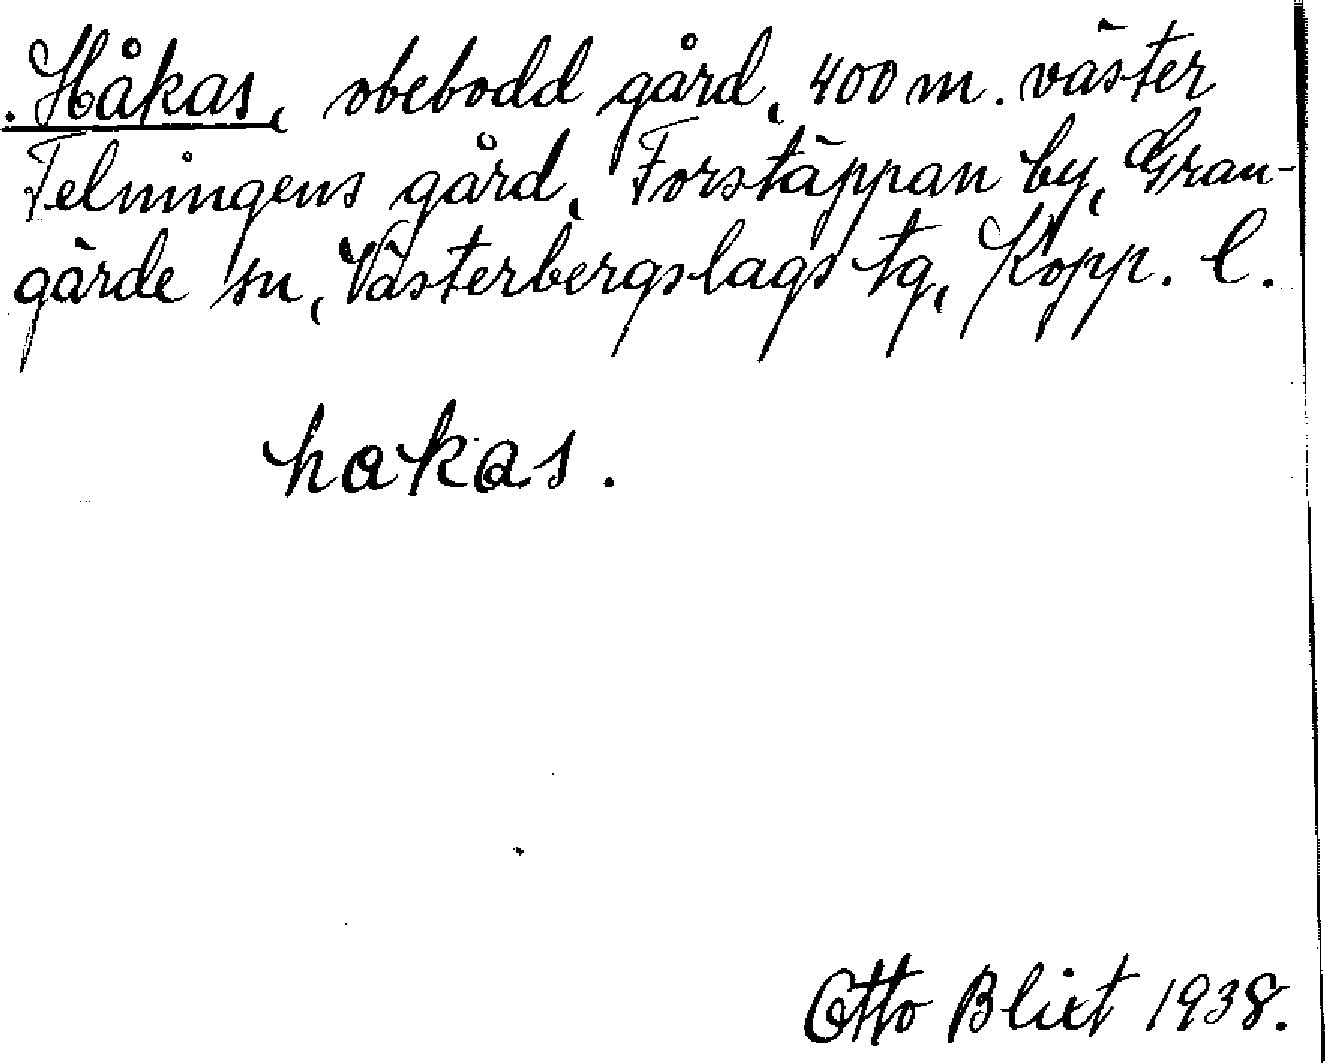 Håkas, obebodd gård, 400 m. väster
Felningens gård, Forstäppan by, Gran-
gärde sn, Västerbergslags tg, Kopp. l.
hakas.
Otto Blixt 1938.